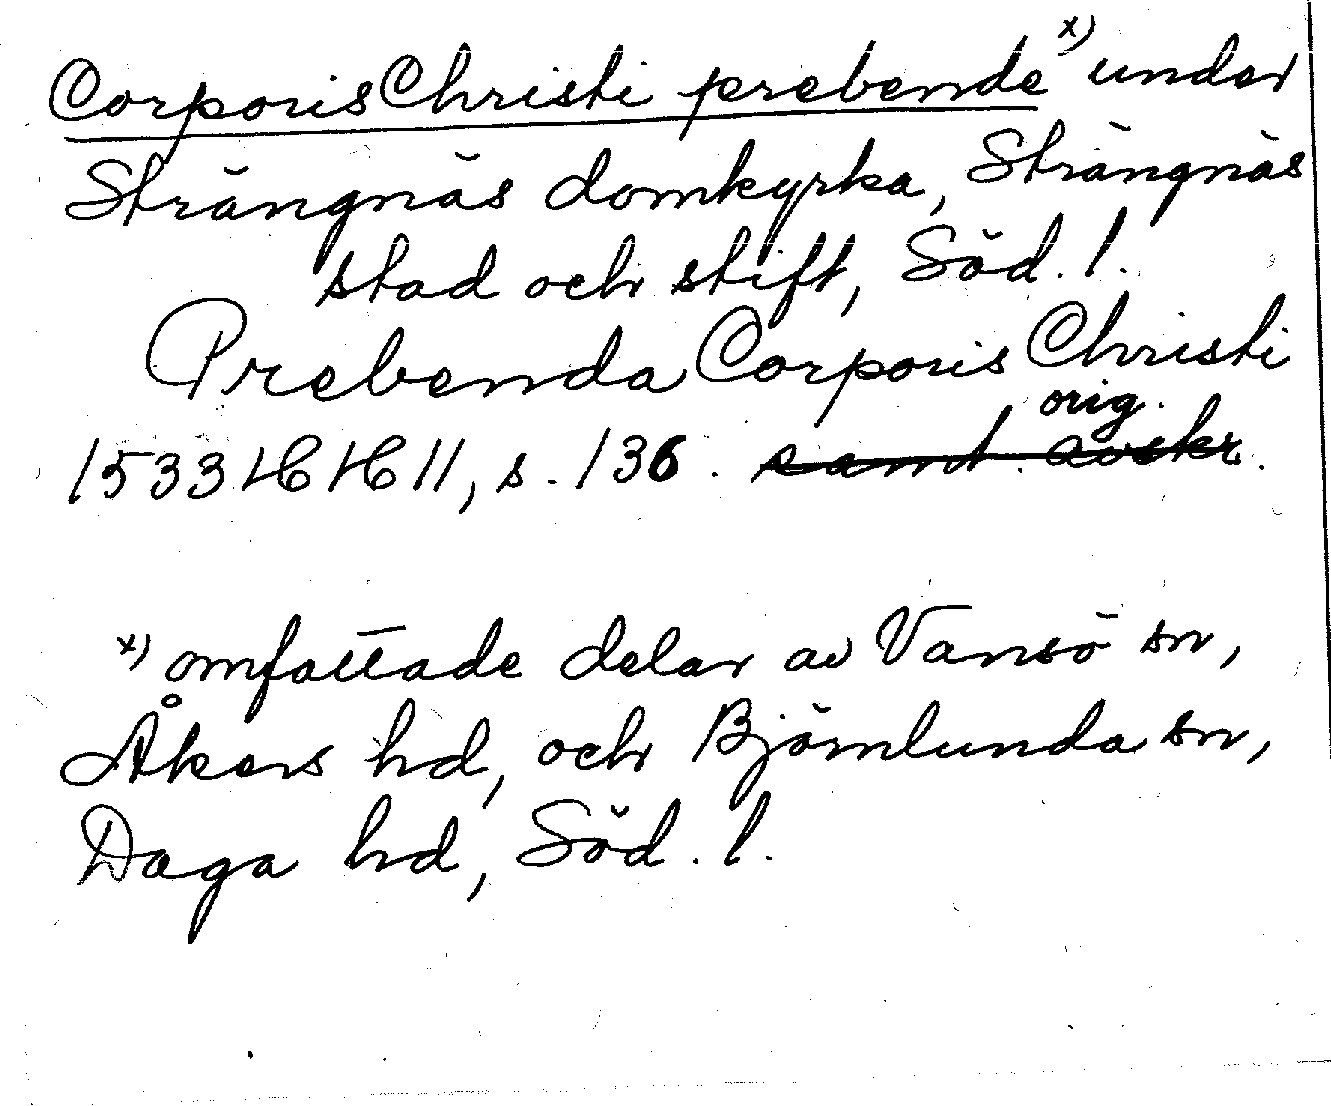 Corporis Christi prebende x) under
Strängnäs domkyrka, Strängnäs
stad och stift, Söd. l.
Prebenda Corporis Christi
orig.
1533 HH 11, s. 136. samt. avskr.
x) omfattade delar av Vansö sn,
Åkers hd, och Björnlunda sn,
Daga hd, Söd. l.